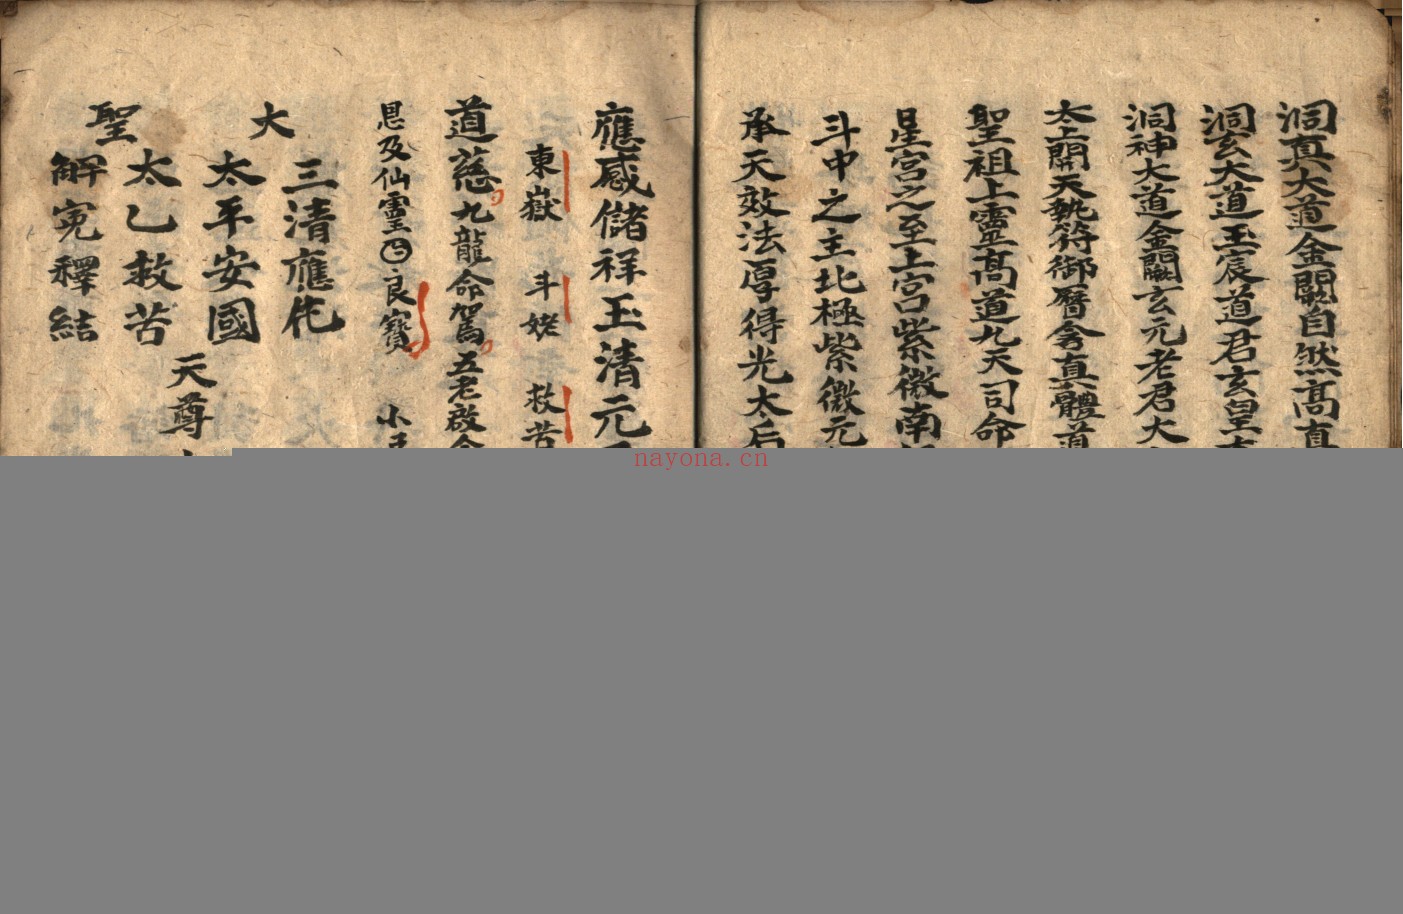 洞真大道金闕自然高真
洞玄大道玉宸道君玄皇
洞神大道金闕玄元老君大
太上開天執符御曆含真體道
聖祖上靈高道九天司命
星宮之至上宮紫微南
斗中之主北極紫微元
承天效法厚得光太后
應感儲祥玉清元
東嶽 斗姥 救苦
道慈九龍命駕五老啟
恩及仙靈 良寶 小
大
三清應化
太平安國
聖
太乙救苦
解冤釋結
天尊
nayona.cn